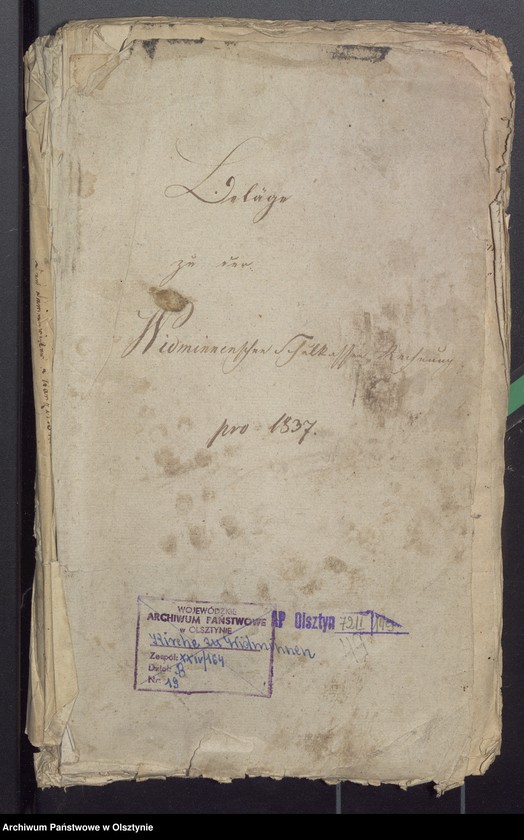 Beläge
zu der
Widminnenschen Schulkassen Rechnung
pro 1837.
WOJEWÓDZKIE
ARCHIWUM PAŃSTWOWE
w OLSZTYNIE
Kirche zu Widminnen
Zespół: XXIV/164
Dział: B
Nr: 19
AP Olsztyn 721/1
Archiwum Państwowe w Olsztynie